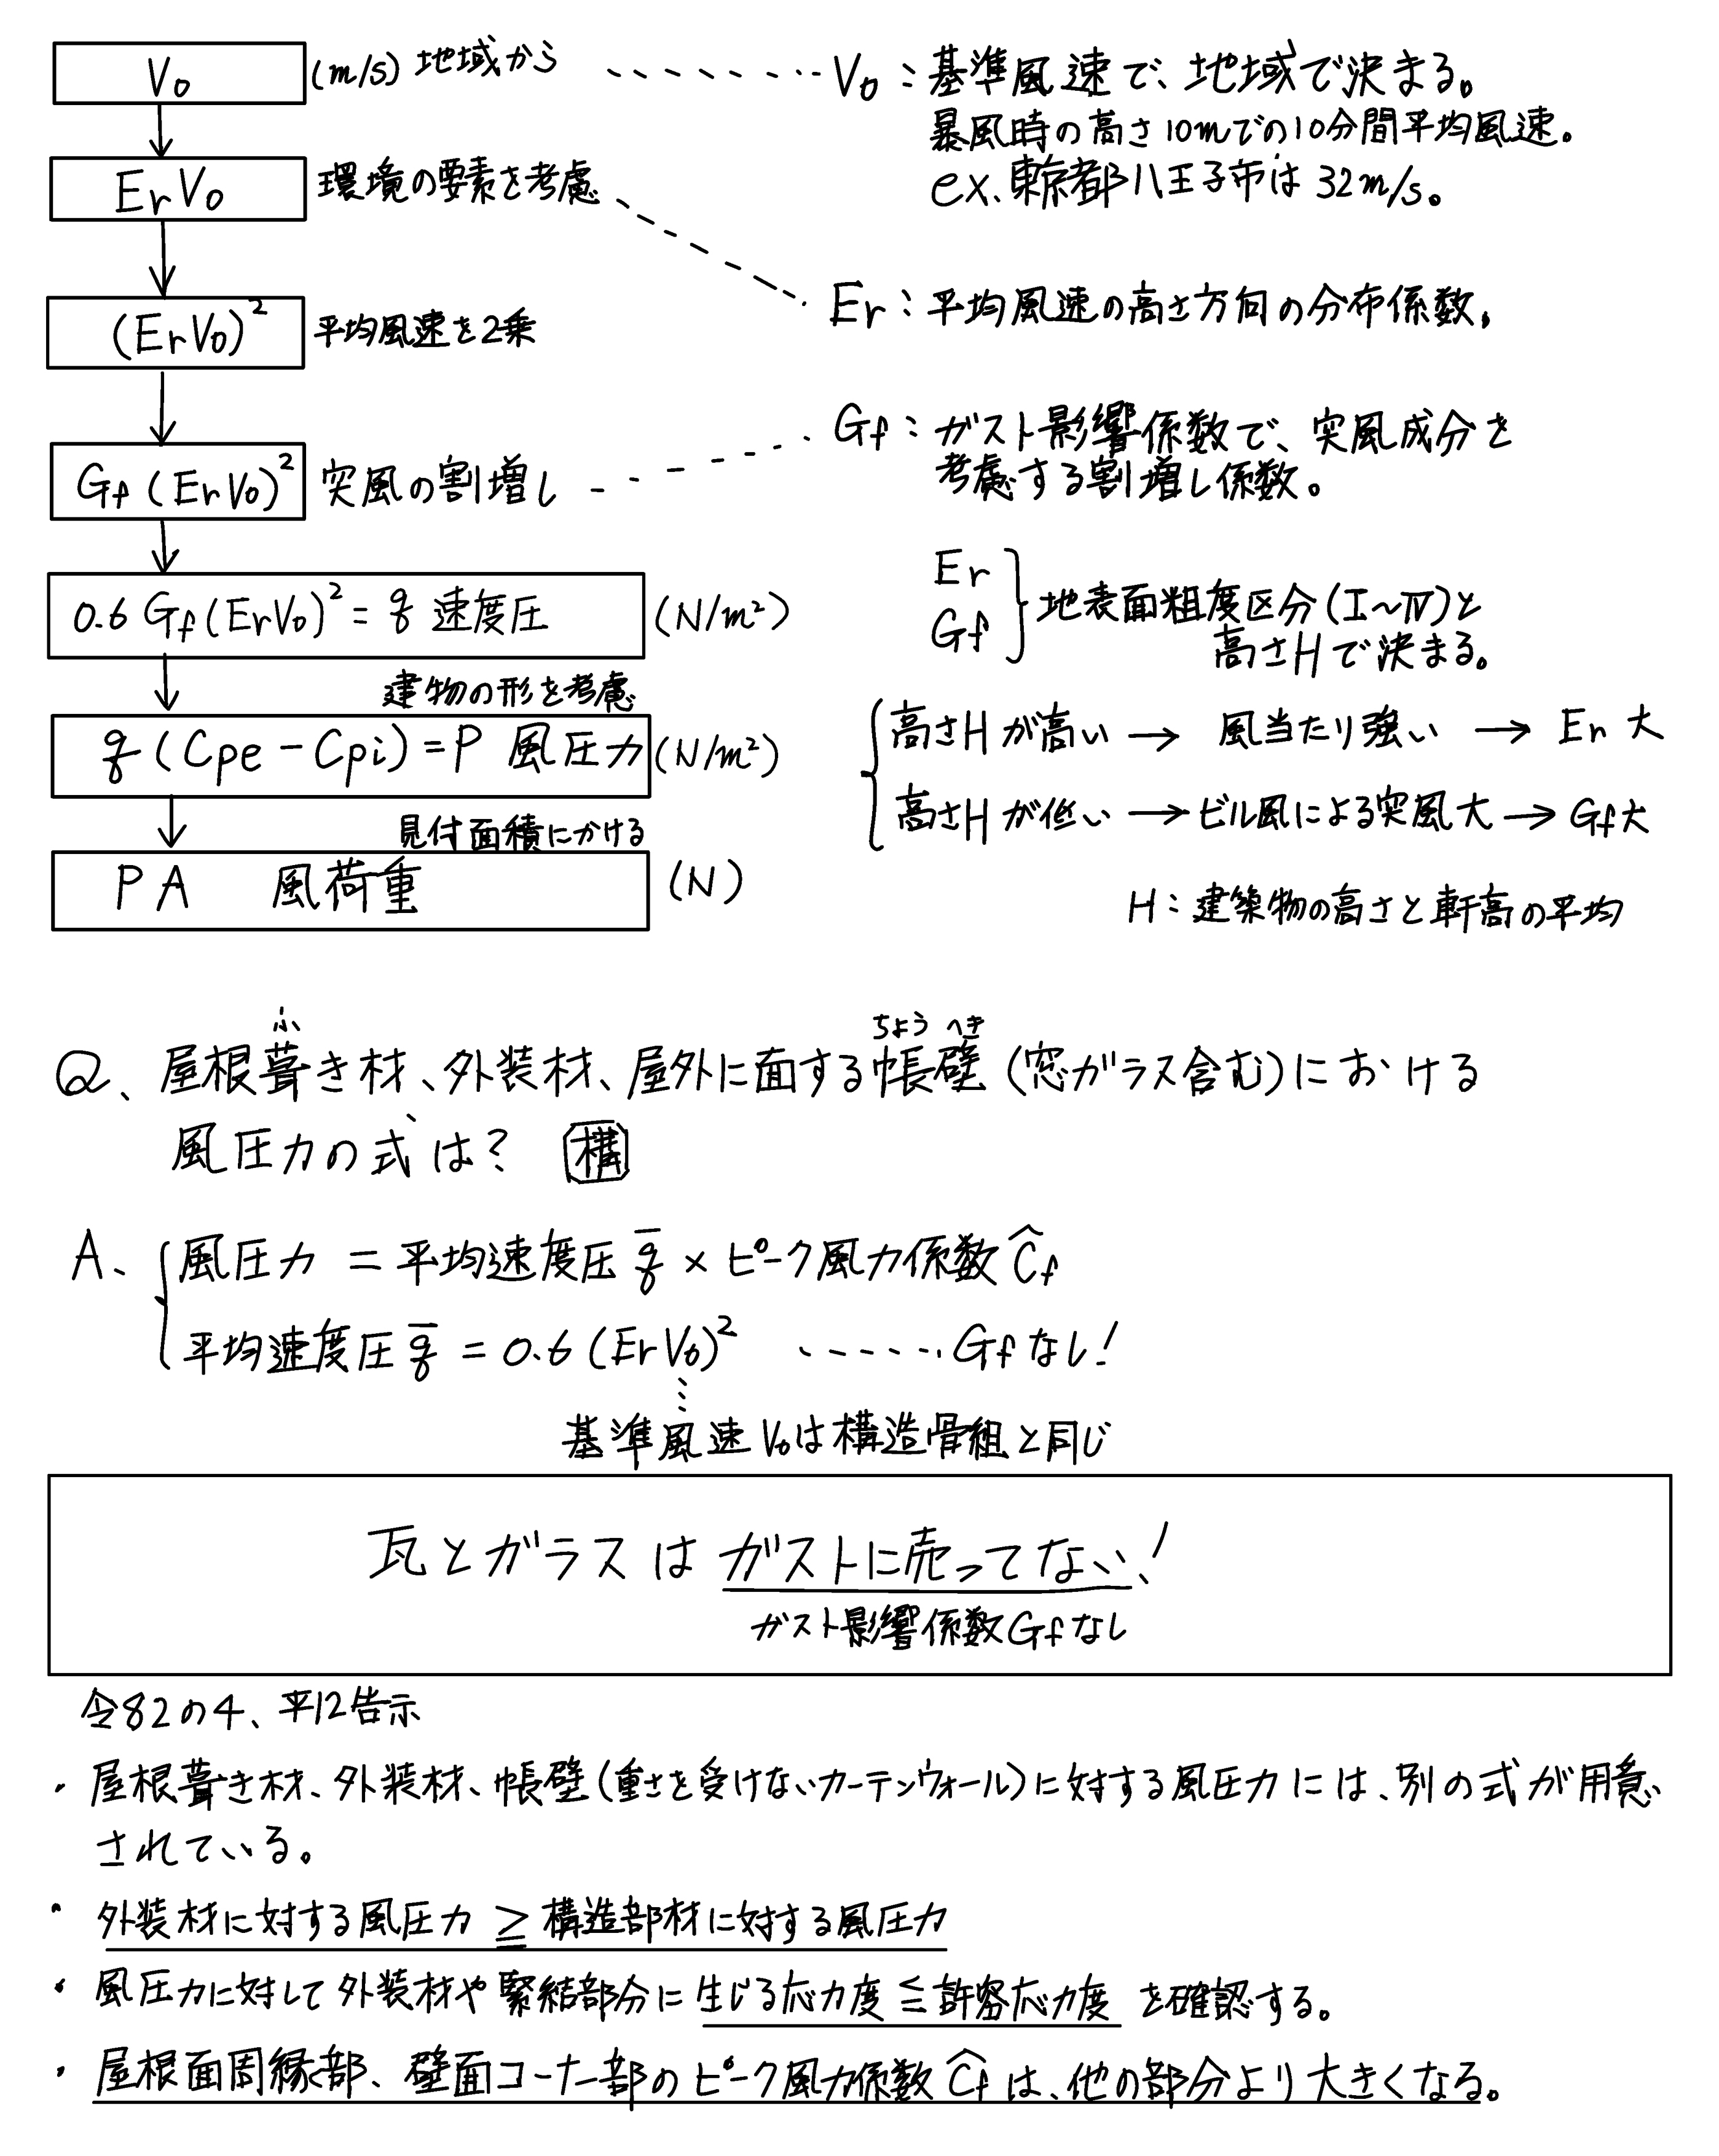 V₀ (m/s) 地域から
V₀：基準風速で、地域で決まる。
暴風時の高さ10mでの10分間平均風速。
ex. 東京都八王子市は 32m/s。
ErV₀ 環境の要素を考慮
Er：平均風速の高さ方向の分布係数。
(ErV₀)² 平均風速を2乗
Gf：ガスト影響係数で、突風成分を
考慮する割増し係数。
Gf(ErV₀)² 突風の割増し
0.6 Gf(ErV₀)² = q 速度圧 (N/m²)
Er
Gf
地表面粗度区分(I〜Ⅳ)と
高さHで決まる。
建物の形を考慮
q(Cpe − Cpi) = P 風圧力 (N/m²)
高さHが高い → 風当たり強い → Er 大
高さHが低い → ビル風による突風大 → Gf大
見付面積にかける
PA 風荷重 (N)
H：建築物の高さと軒高の平均
ふ ちょう へき
Q、屋根葺き材、外装材、屋外に面する帳壁(窓ガラス含む)における
風圧力の式は？ 構
A、風圧力 = 平均速度圧 q̄ × ピーク風力係数 Ĉf
平均速度圧 q̄ = 0.6 (ErV₀)² ……Gfなし！
基準風速V₀は構造骨組と同じ
瓦とガラスは ガストに売ってない！
ガスト影響係数Gfなし
令82の4、平12告示
・屋根葺き材、外装材、帳壁(重さを受けないカーテンウォール)に対する風圧力には、別の式が用意
されている。
・外装材に対する風圧力 ≧ 構造部材に対する風圧力
・風圧力に対して外装材や緊結部分に生じる応力度 ≦ 許容応力度 を確認する。
・屋根面周縁部、壁面コーナー部のピーク風力係数 Ĉf は、他の部分より大きくなる。